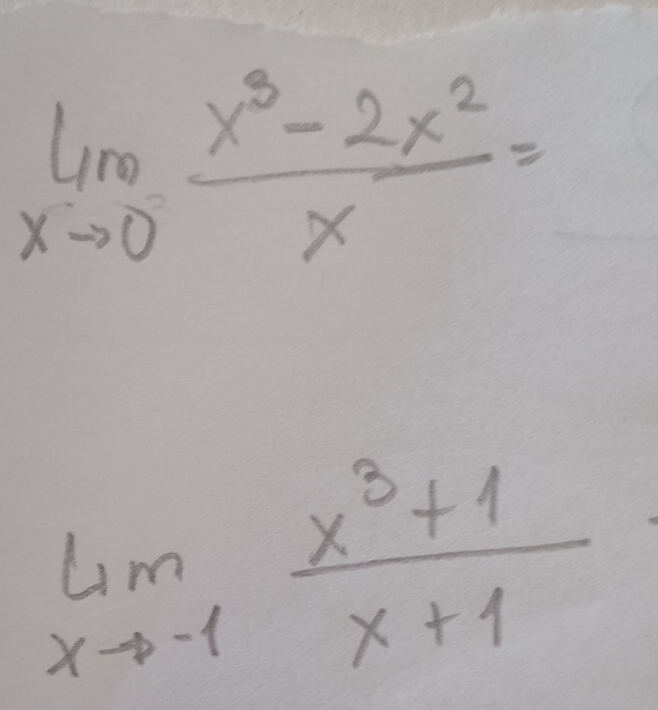 lim x→0 (x³ - 2x²)/x =
lim x→-1 (x³ + 1)/(x + 1)